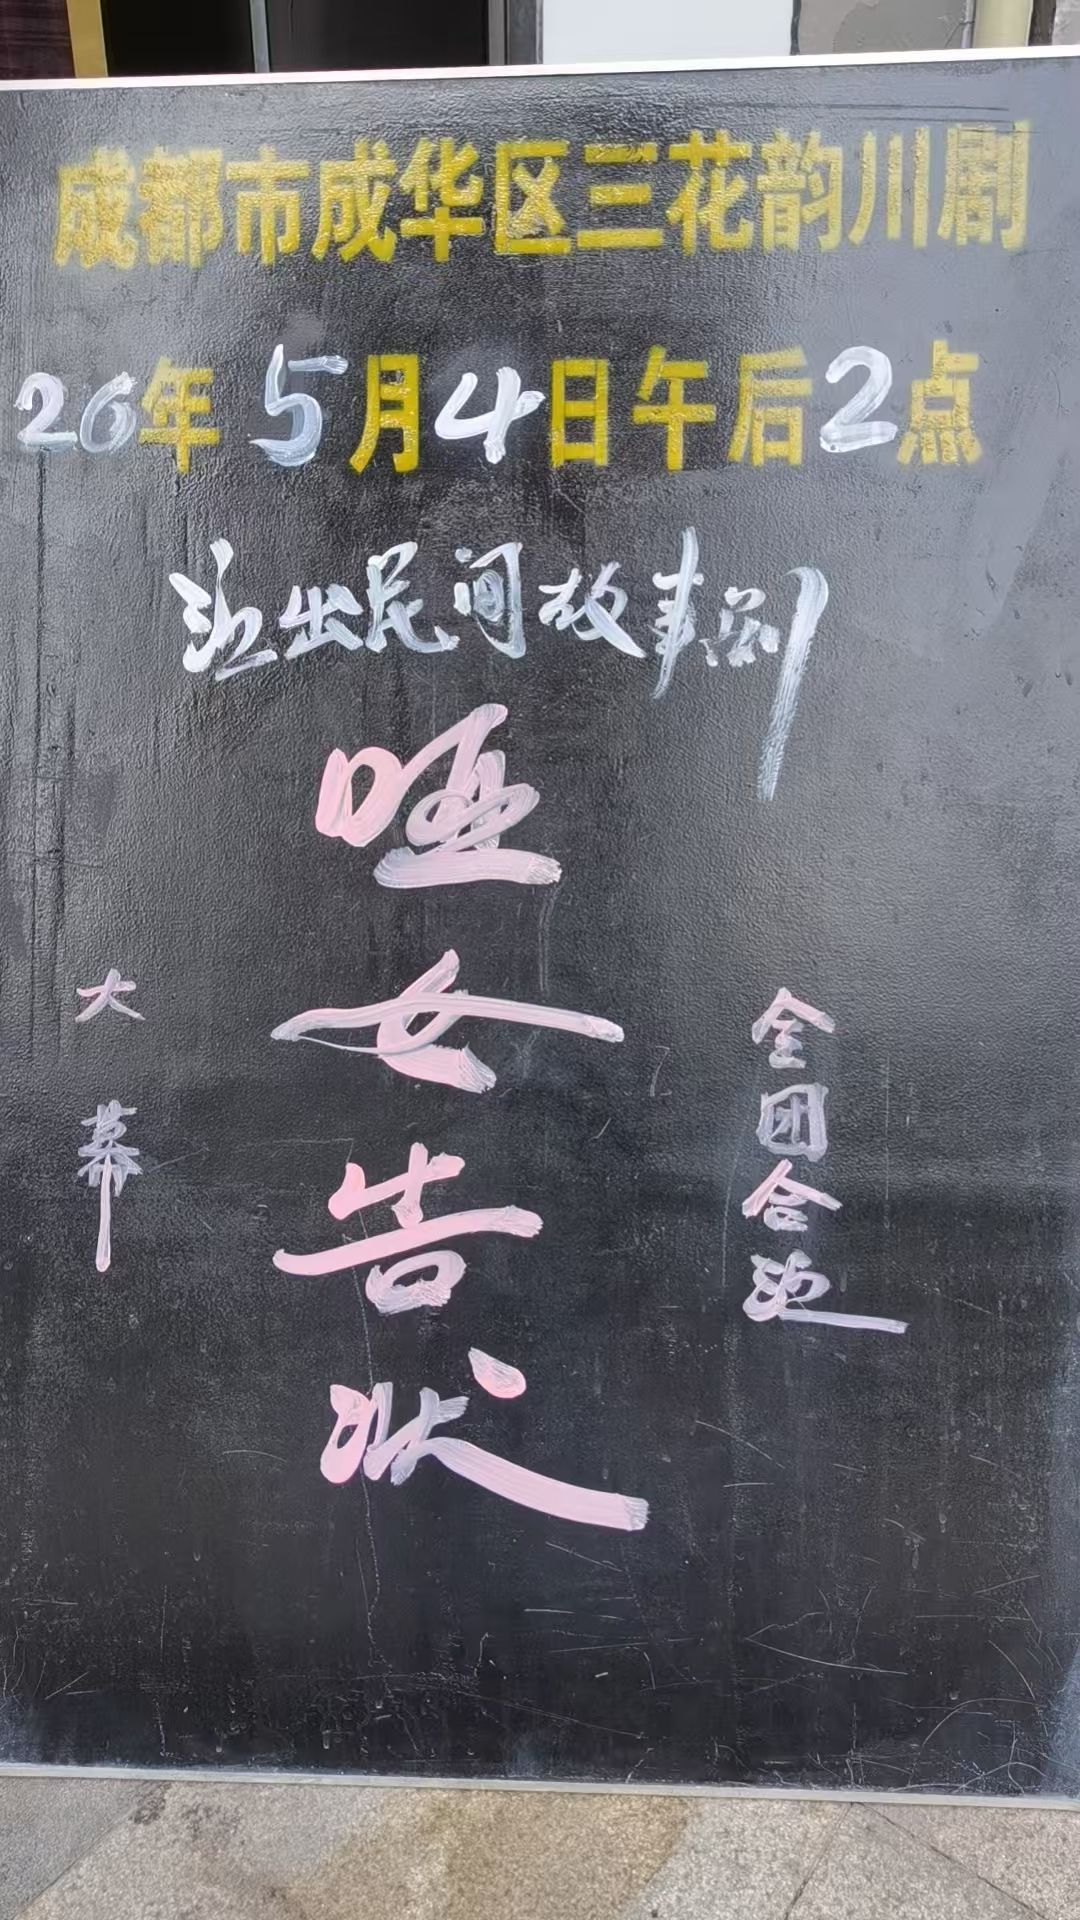 成都市成华区三花韵川剧
26年5月4日午后2点
演出民间故事剧
哑女告状
大幕
全团合演